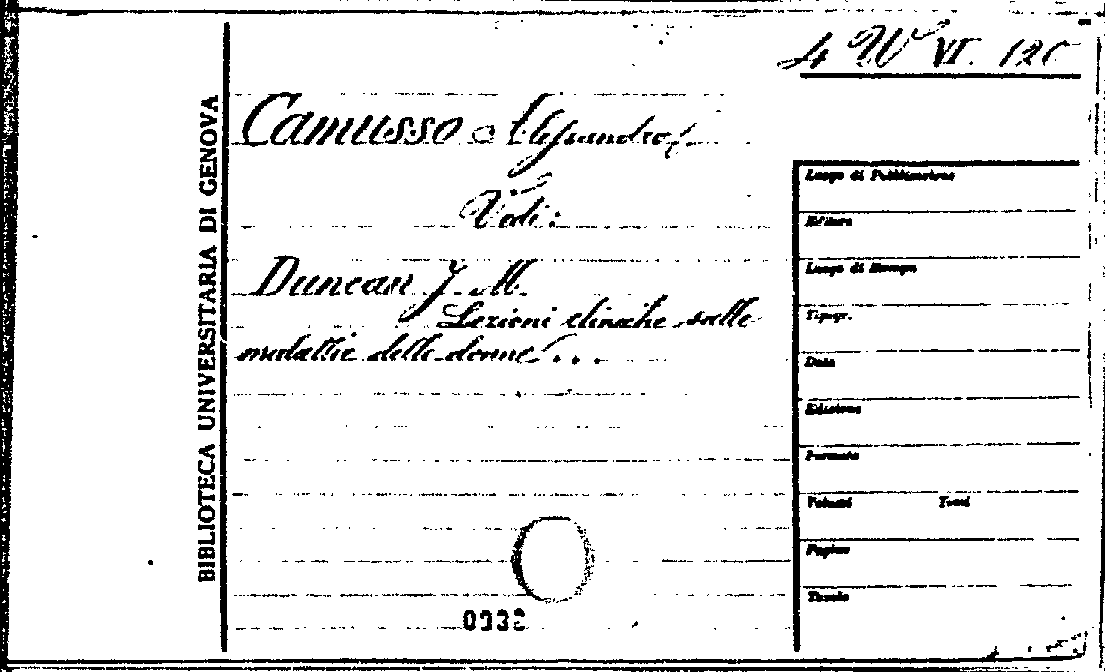 4 W VI. 120
BIBLIOTECA UNIVERSITARIA DI GENOVA
Camusso Alessandro.
Vedi:
Duncan J. M.
Lezioni cliniche sulle
malattie delle donne...
Luogo di Pubblicazione
Editore
Luogo di Stampa
Tipogr.
Data
Edizione
Formato
Volumi Tomi
Pagine
Tavole